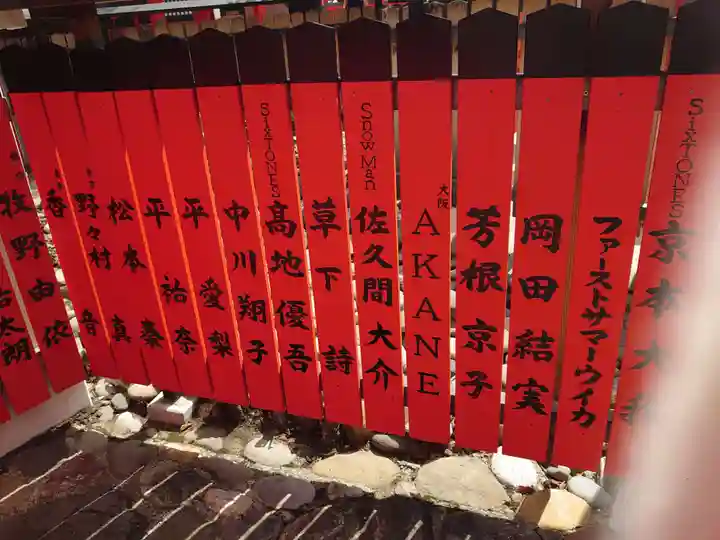 SixTONES 京本大我
ファーストサマーウイカ
岡田結実
芳根京子
大阪 AKANE
Snow Man 佐久間大介
草下詩
SixTONES 髙地優吾
中川翔子
平愛梨
平祐奈
松本真奏
野々村音
香 由依
牧野 太朗